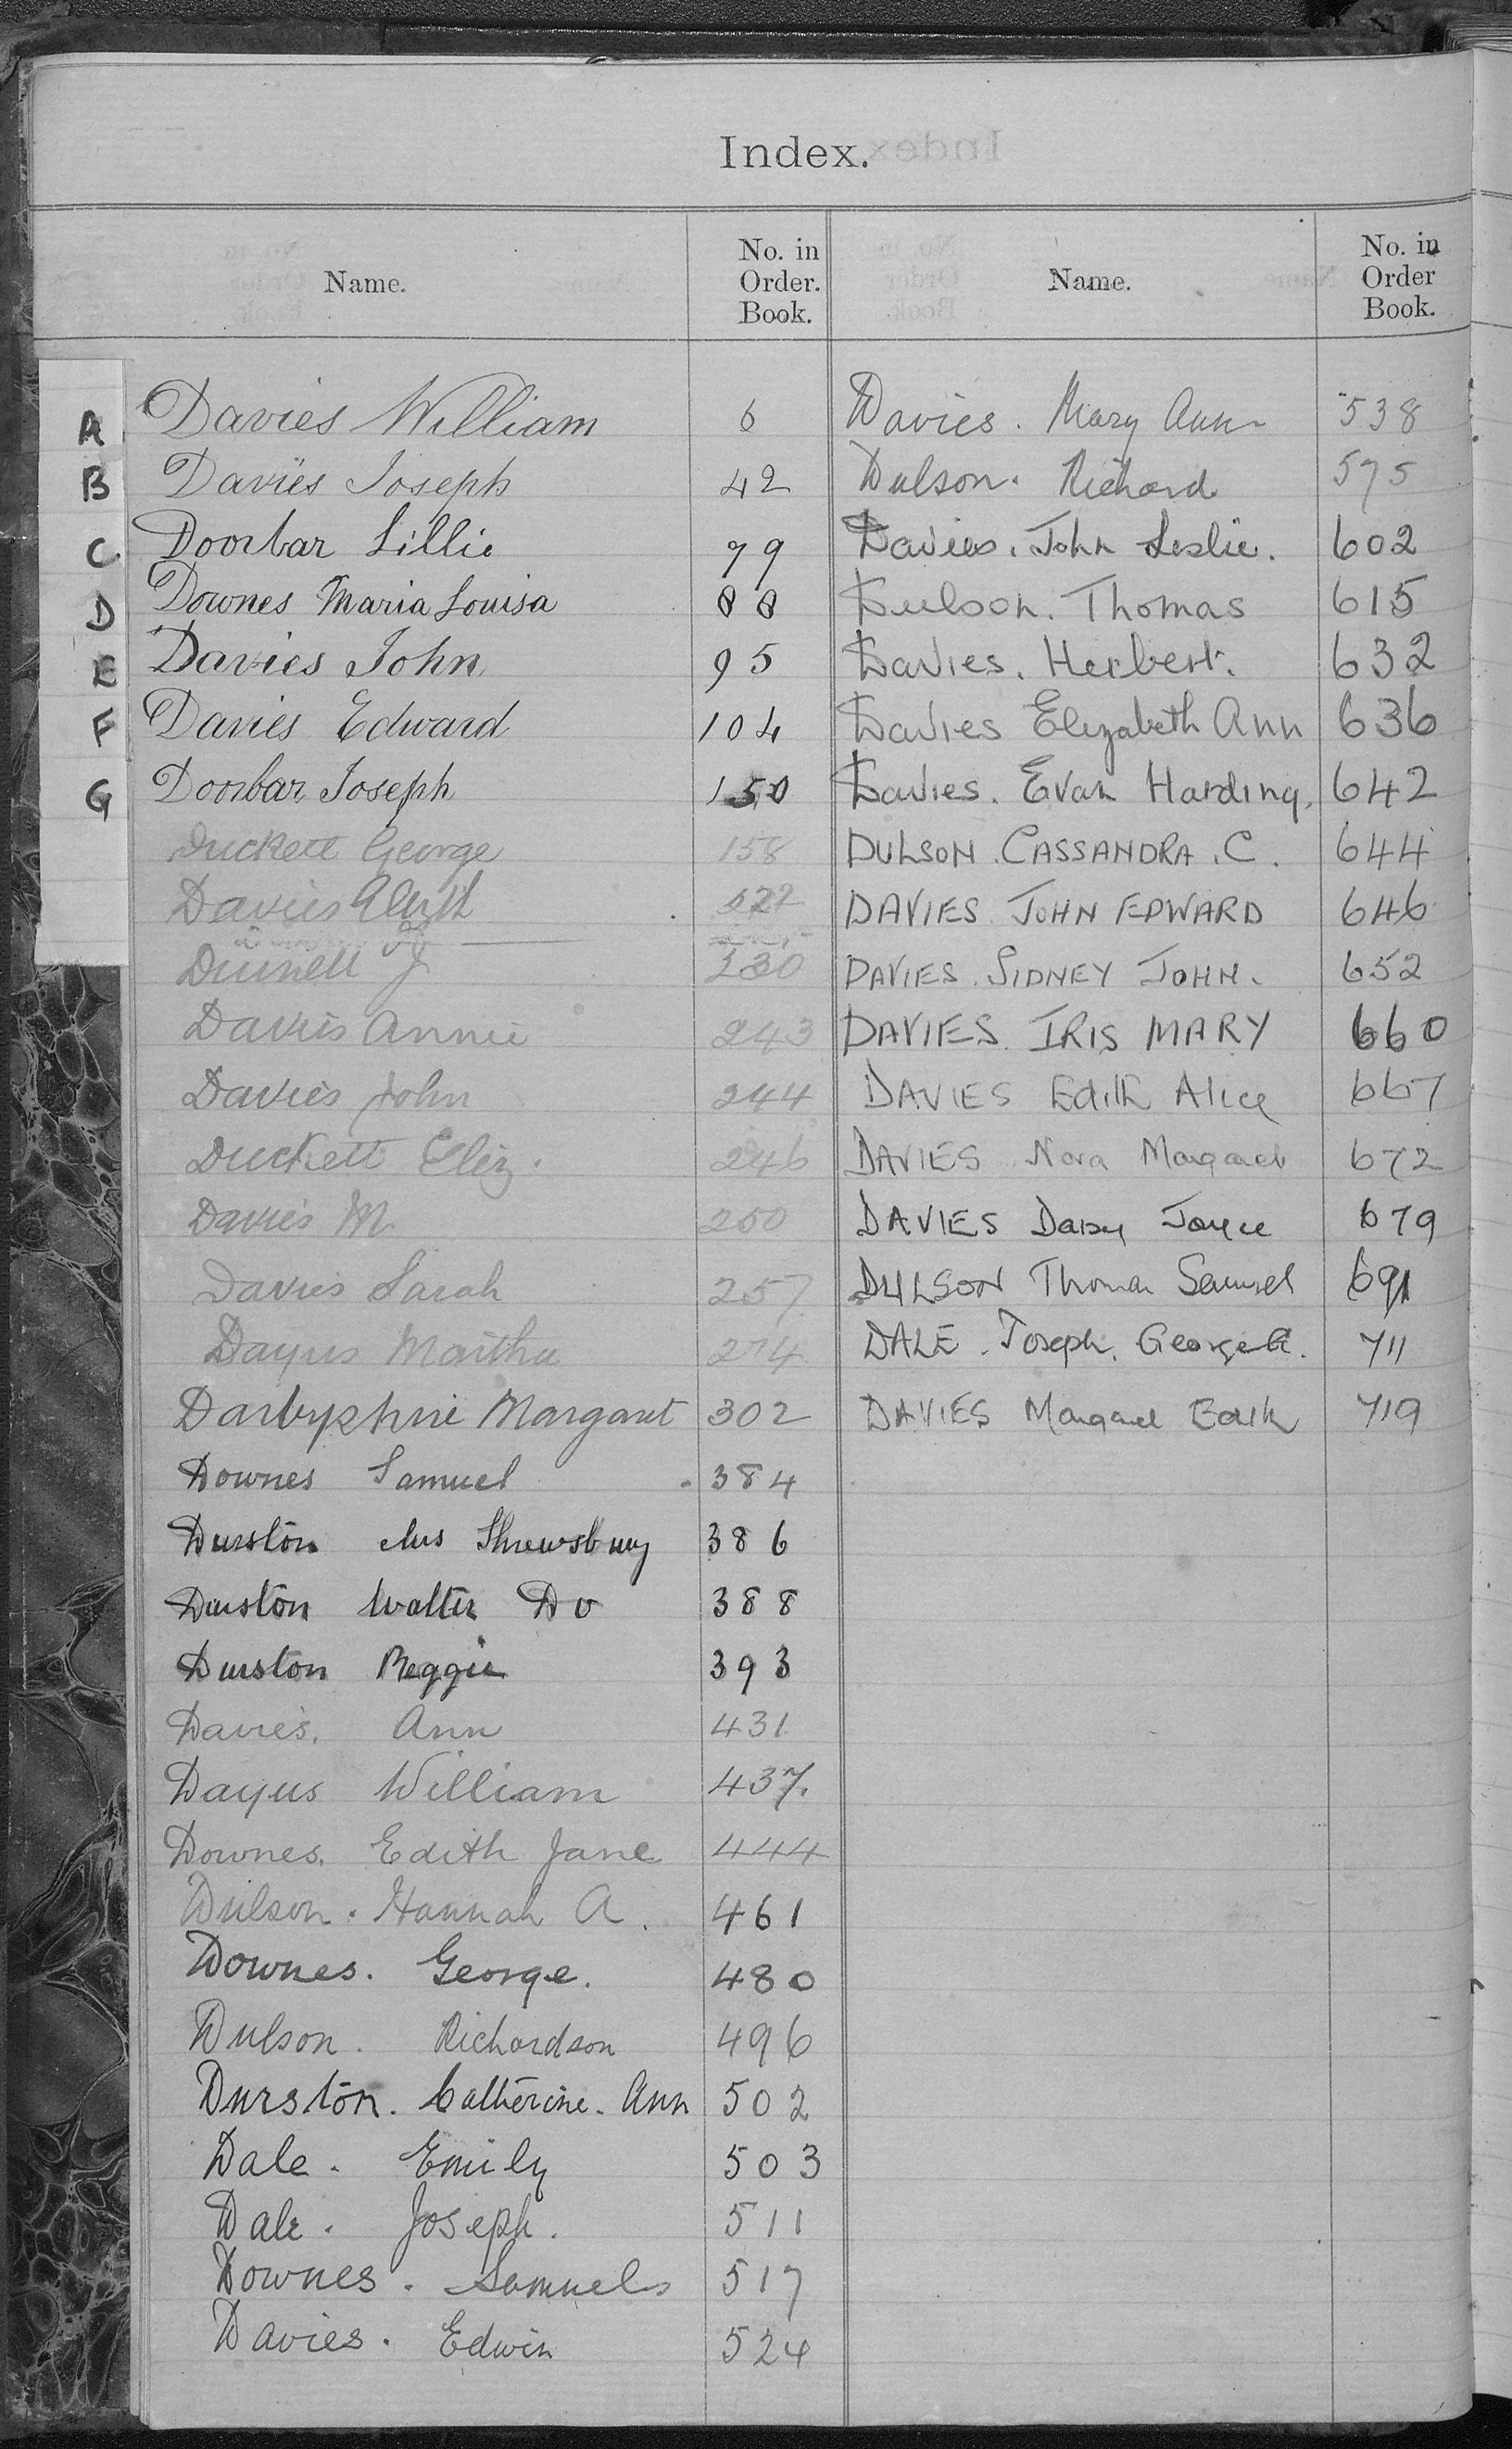 Index.
Name.
No. in
Order.
Book.
Name.
No. in
Order
Book.
A
B
C
D
E
F
G
Davies William 6
Davies Joseph 42
Doorbar Lillie 79
Downes Maria Louisa 88
Davies John 95
Davies Edward 104
Doorbar Joseph 150
Duckett George 158
Davies
J 230
Davies Annie 243
Davies John 244
Duckett Eliz. 246
Davies M. 250
Davies Sarah 257
Dayus Martha 274
Darbyshire Margaret 302
Downes Samuel 384
Durston Mrs Shrewsbury 386
Durston Walter Do 388
Durston Reggie 393
Davies, Ann 431
Dayus William 437.
Downes, Edith Jane 444
Dulson. Hannah A. 461
Downes. George. 480
Dulson. Richardson 496
Durston. Catherine. Ann 502
Dale. Emily 503
Dale. Joseph. 511
Downes. Samuel 517
Davies. Edwin 524
Davies. Mary Ann 538
Dulson. Richard 575
Davies. John Leslie. 602
Dulson. Thomas 615
Davies. Herbert. 632
Davies Elizabeth Ann 636
Davies. Evan Harding. 642
DULSON. CASSANDRA. C. 644
DAVIES. JOHN EDWARD 646
DAVIES. SIDNEY JOHN. 652
DAVIES. IRIS MARY 660
DAVIES Edith Alice 667
DAVIES Nora Margaret 672
DAVIES Daisy Joyce 679
DULSON Thomas Samuel 691
DALE. Joseph. George 711
DAVIES Margaret Edith 719